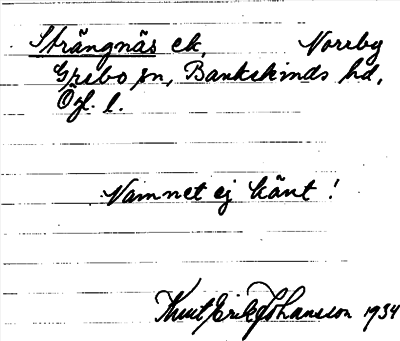 Strängnäs ek, Norrby
Grebo sn, Bankekinds hd,
Ög. l.
Namnet ej känt!
Knut Erik Johansson 1934